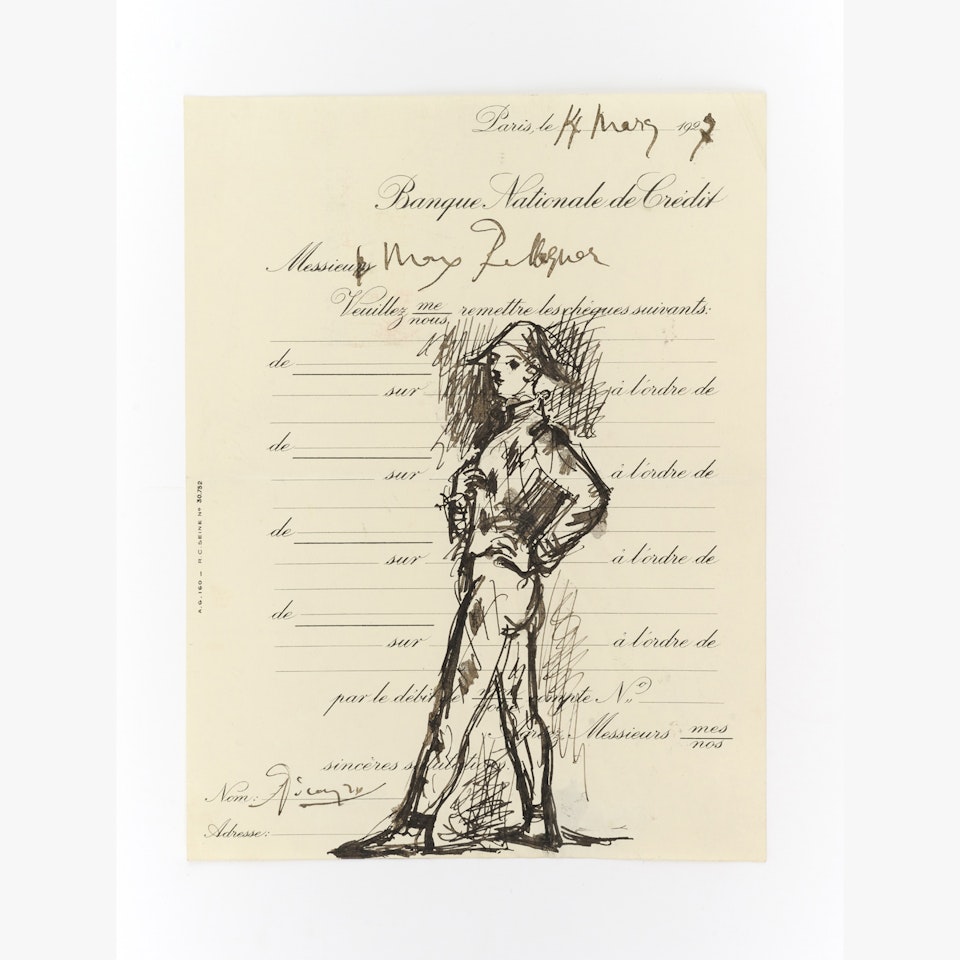 Paris, le 14 Mars 1927
Banque Nationale de Crédit
Messieurs Max Pellequer
Veuillez me
nous remettre les chèques suivants:
de
sur à l'ordre de
de
sur à l'ordre de
de
sur à l'ordre de
de
sur à l'ordre de
par le débit de compte N°
Messieurs mes
nos
sincères salutations.
Nom: Picasso
Adresse:
A.G. 160 _ R.C. SEINE N° 30.752